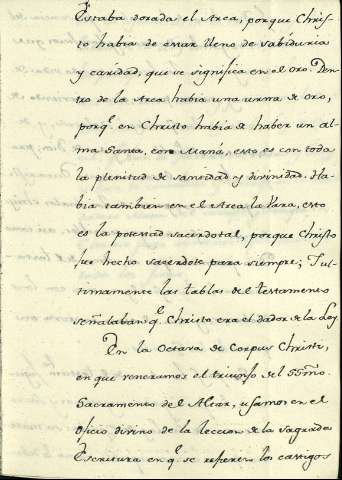 Estaba dorada el Arca, porque Chris-
to habia de estar lleno de sabiduria
y caridad, que se significa en el oro. Den-
tro de la Arca habia una urna de oro,
porq.e en Christo habia de haber un al-
ma Santa, con Maná, esto es con toda
la plenitud de santidad y divinidad. Ha-
bia tambien en el Arca la Vara, esto
es la potestad sacerdotal, porque Christo
fue hecho sacerdote para siempre; Y ul-
timamente las tablas del testamento
señalaban q.e Christo era el dador de la Ley
En la Octava de Corpus Christi,
en que veneramos el triunfo del SSmo.
Sacramento del Altar, usamos en el
Oficio divino de la leccion de la sagrada
Escritura en q.e se refieren los castigos